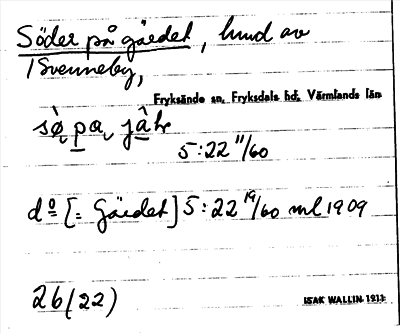 Söder på gärdet, hmd av
1 Svenneby,
Fryksände sn, Fryksdals hd, Värmlands län
5:22 11/60
dº [= Gärdet] 5:22 19/60 ml 1909
26 (22)
ISAK WALLIN 1911